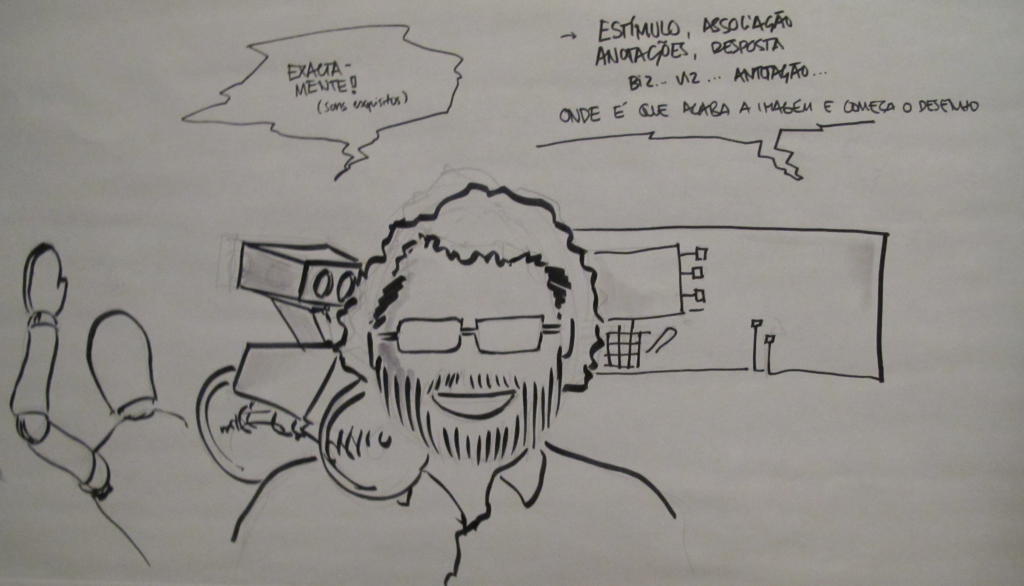 EXACTA-
MENTE!
(sons esquisitos)
→ ESTÍMULO, ASSOCIAÇÃO
ANOTAÇÕES, RESPOSTA
BIZ... VIZ... ANOTAÇÃO...
ONDE É QUE ACABA A IMAGEM E COMEÇA O DESENHO